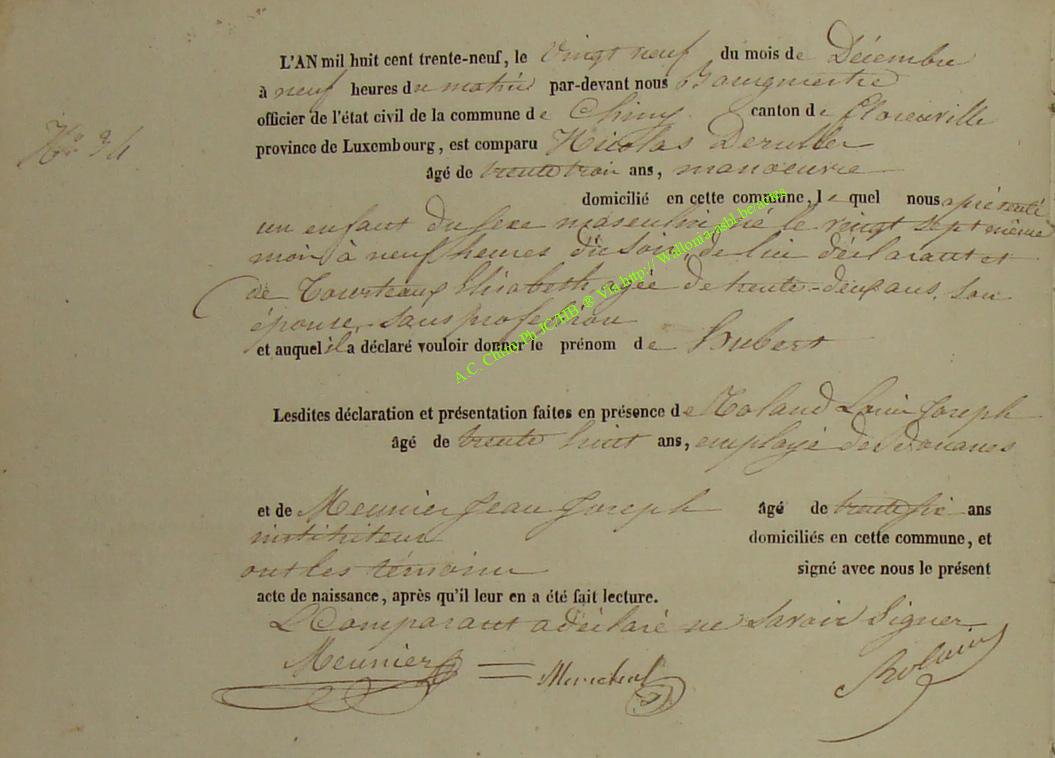 L'AN mil huit cent trente-neuf, le vingt neuf du mois de Décembre
à neuf heures du matin par-devant nous Bourgmestre
officier de l'état civil de la commune de Chiny canton de florenville
No 34
province de Luxembourg, est comparu Nicolas
âgé de trente trois ans, manoeuvre
domicilié en cette commune, le quel nous a présenté
un enfant du sexe masculin né le vingt sept même
mois à neuf heures du soir, de lui déclarant et
de Elisabeth, agée de trente-deux ans, son
épouse, sans profession
et auquel il a déclaré vouloir donner le prénom de Hubert
A.C. Chiny Ph JC.HB ® Via http:// Wallonia-asbl.be/actes
Lesdites déclaration et présentation faites en présence de Roland Louis Joseph
âgé de trente huit ans, employé des douanes
et de Meunier Jean Joseph âgé de trente six ans
instituteur domiciliés en cette commune, et
ont les témoins signé avec nous le présent
acte de naissance, après qu'il leur en a été fait lecture.
Le Comparant a déclaré ne savoir Signer
Meunier Roland